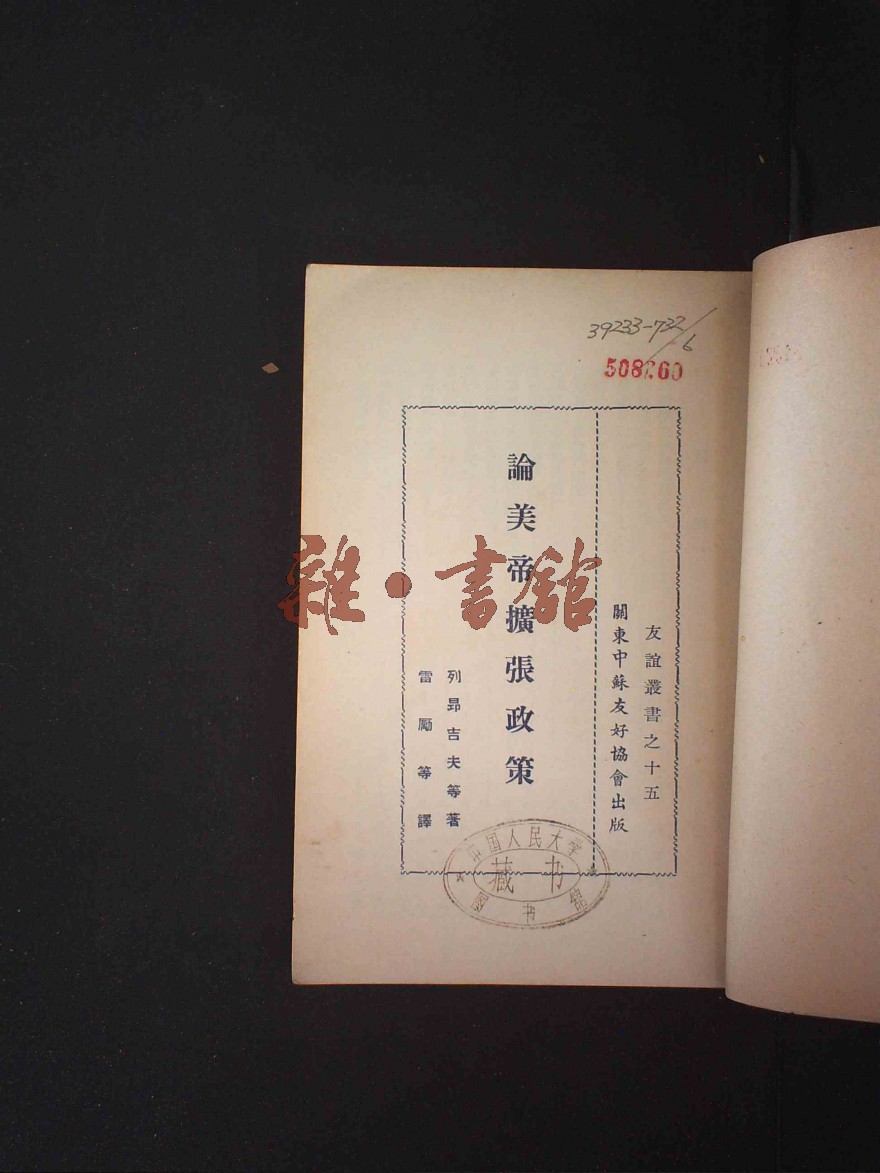 39233-732/6
508260
友誼叢書之十五
關東中蘇友好協會出版
論美帝擴張政策
列昂吉夫等著
雷勵等譯
中国人民大学
藏书
图书馆
雜·書館